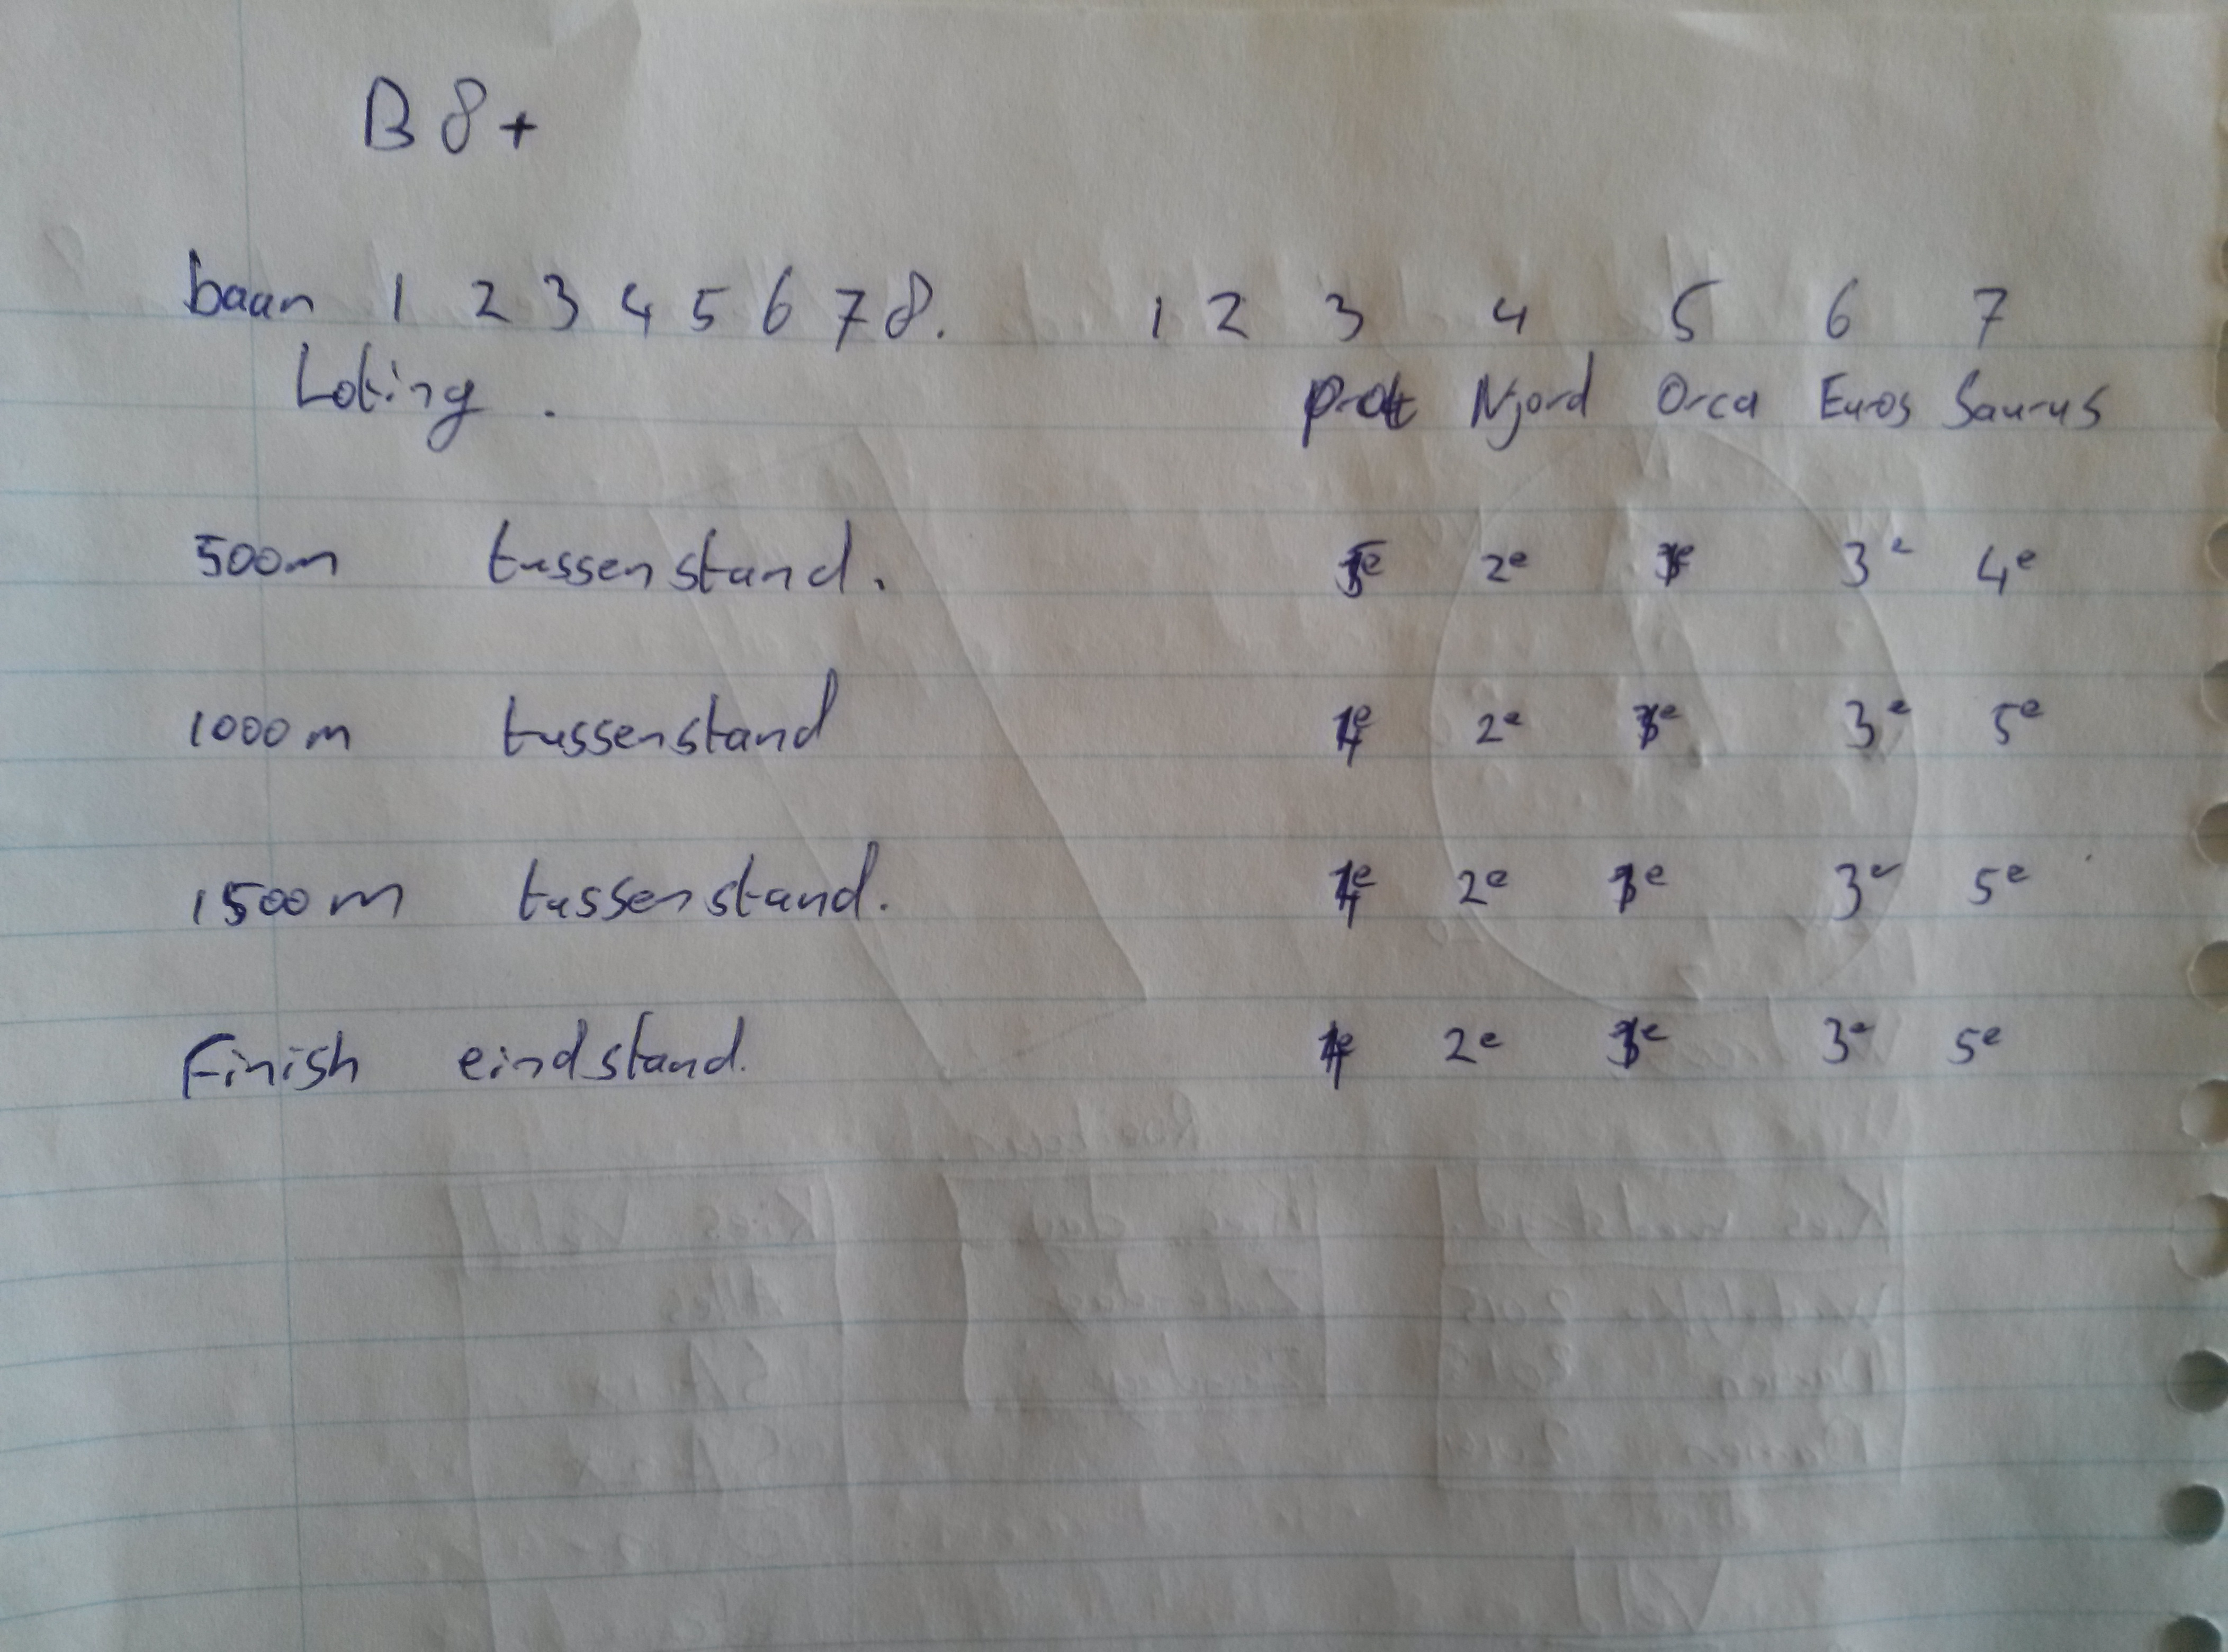 B 8+
baan 1 2 3 4 5 6 7 8. 1 2 3 4 5 6 7
Loting. Njord Orca Euros Saurus
500m tussenstand. 2e 3e 4e
1000m tussenstand 2e 3e 5e
1500m tussenstand. 2e 3e 5e
Finish eindstand. 2e 3e 5e